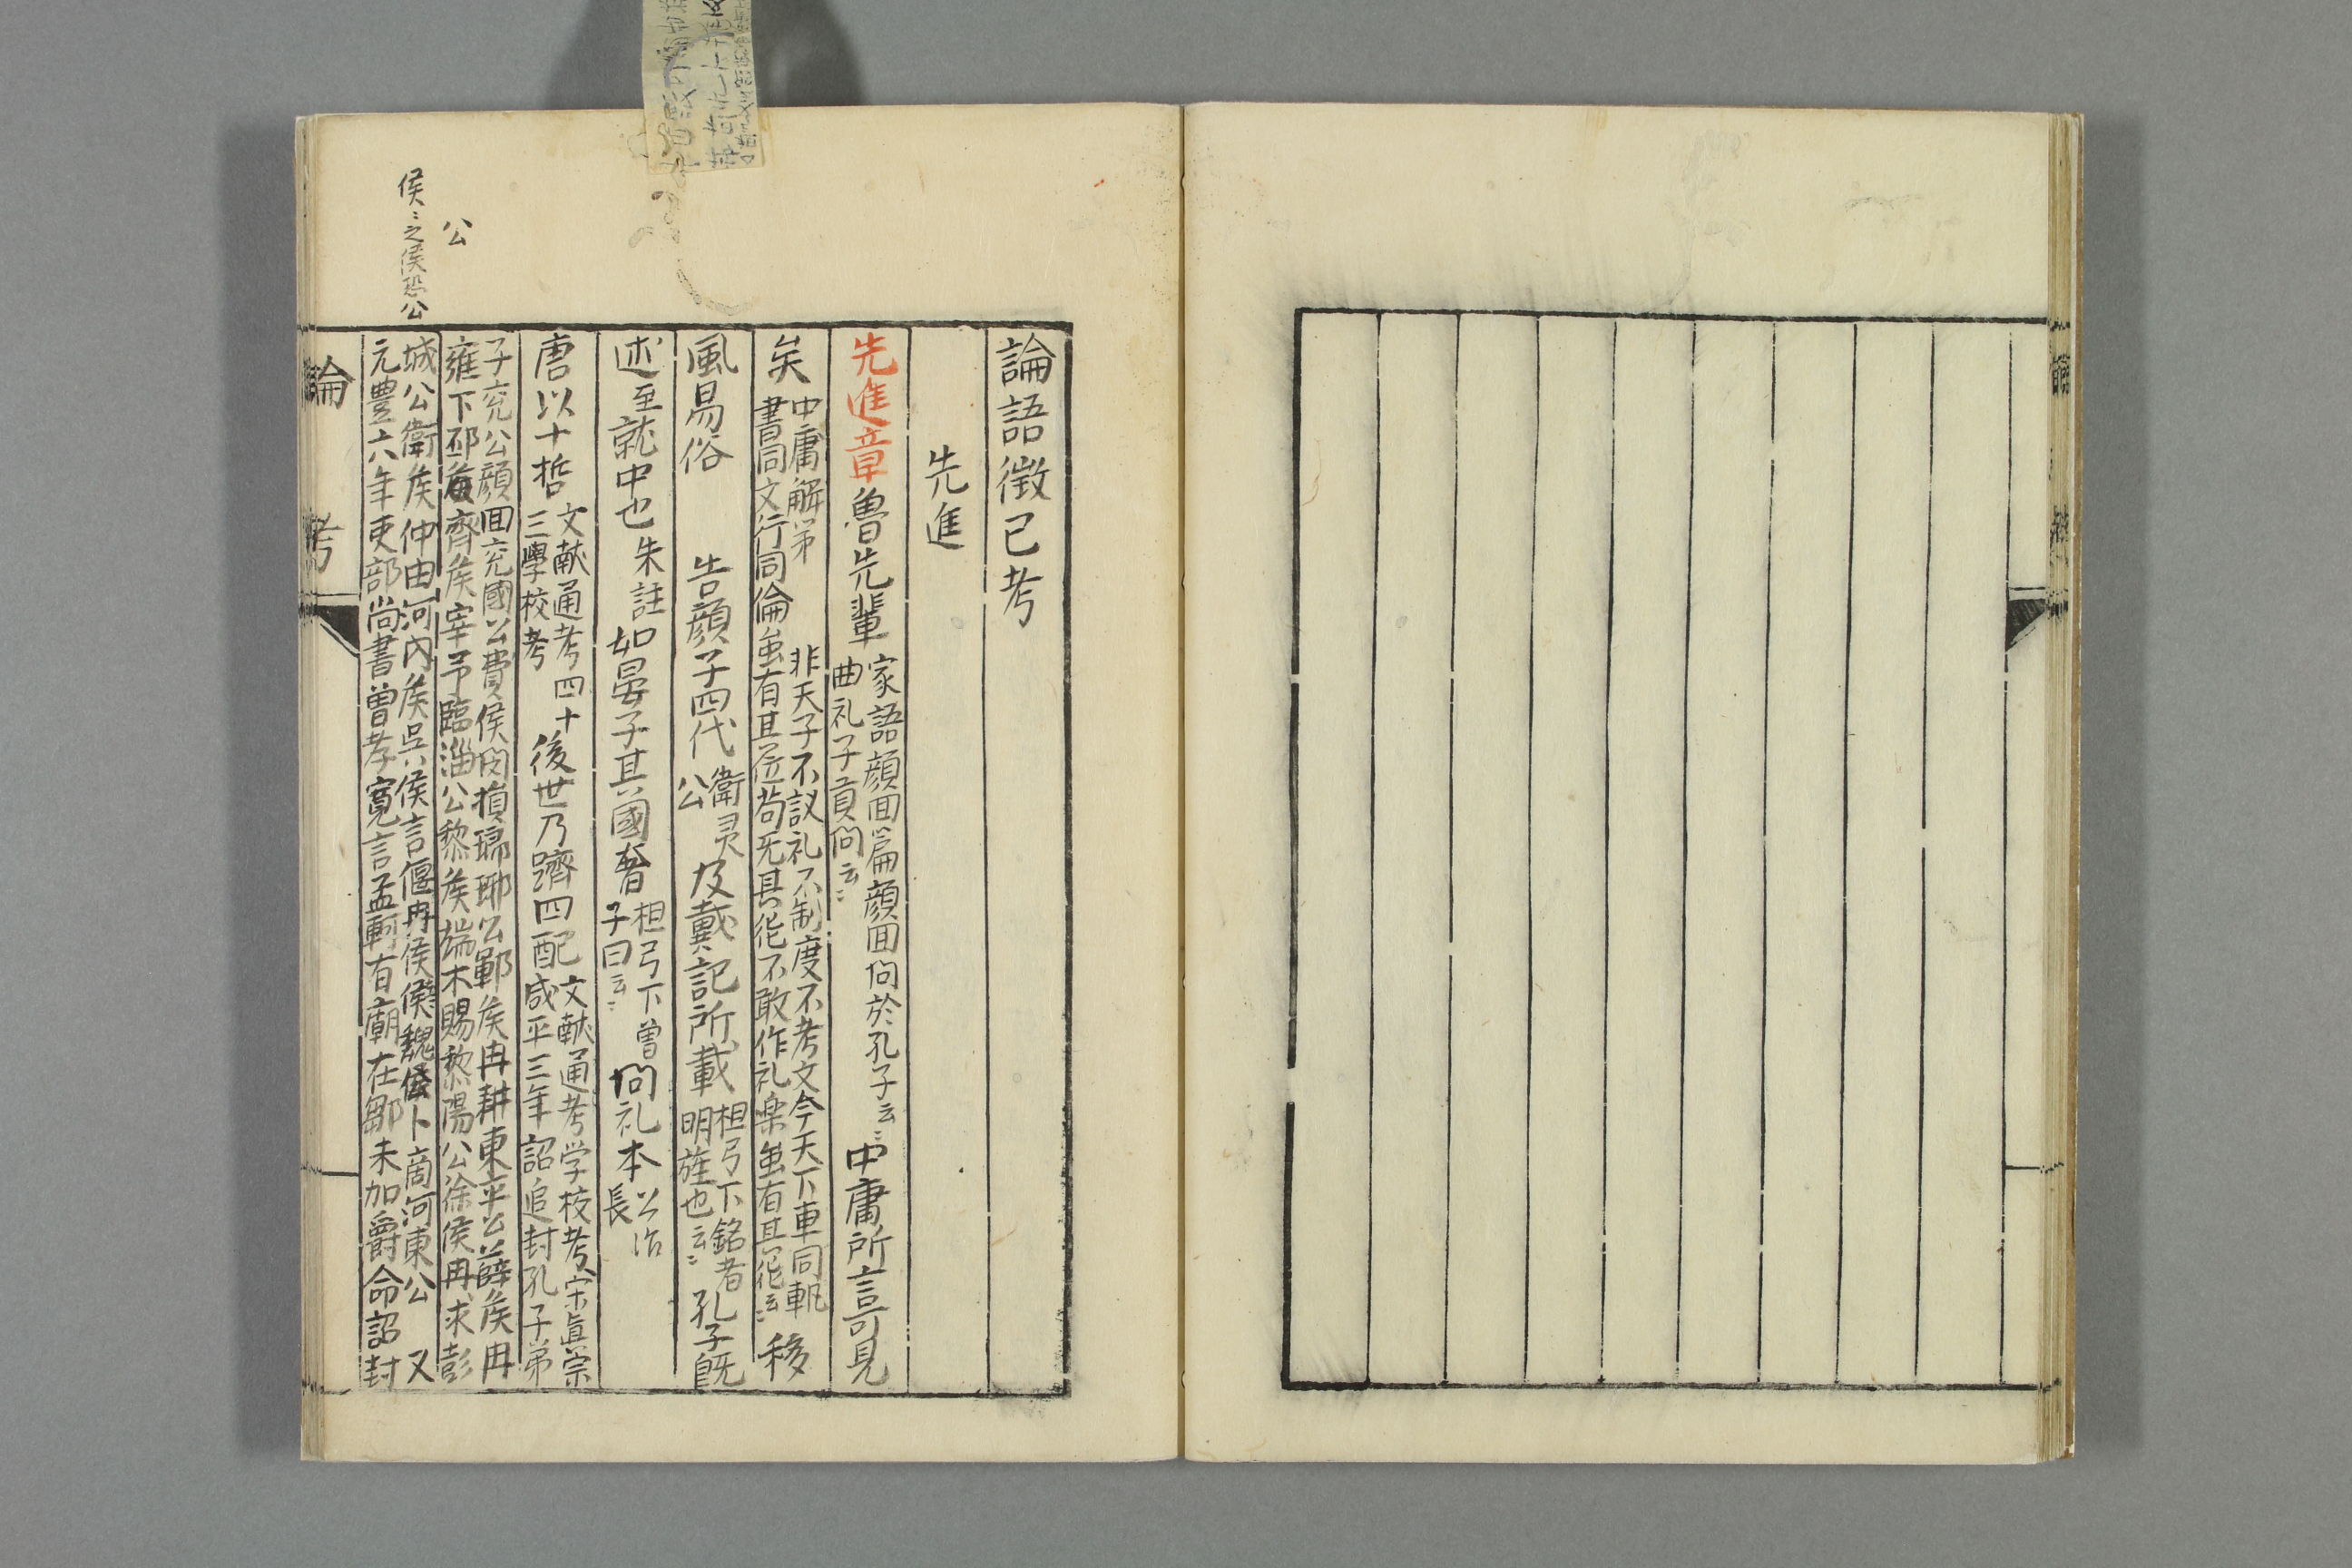 論語徴已考
先進
先進章魯先輩
家語顔回篇顔回問於孔子云〻
曲礼子貢問云〻
中庸所言可見
矣
中庸解第
書同文行同倫虽有其位苟旡其徳不敢作礼楽虽有其徳云〻
非天子不議礼不制度不考文今天下車同軌
移
風易俗
告顔子四代
衛灵
公
及戴記所載
檀弓下銘者
明旌也云〻
孔子既
述至就中也
朱註
如晏子其國奢
檀弓下曽
子曰云〻
問礼本
公冶
長
唐以十哲
文献通考四十
三學校考
後世乃躋四配
文献通考学校考宋真宗
咸平三年詔追封孔子弟
子兖公顔回兖國公費侯閔損瑯琊公鄆侯冉耕東平公薛侯冉
雍下邳公齊侯宰予臨淄公黎侯端木賜黎陽公徐侯冉求彭
城公衛侯仲由河内侯呉侯言偃丹侯魏侯卜商河東公 又
元豊六年吏部尚書曽孝寛言孟軻有廟在鄒未加爵命詔封
公
侯〻之侯恐公
論 考